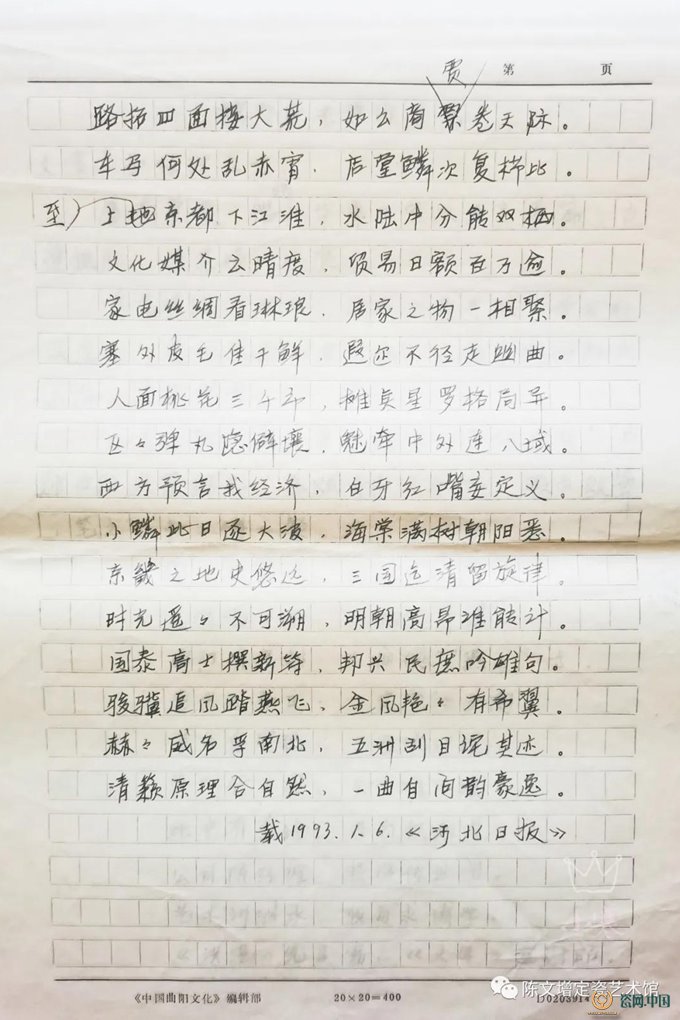 贾
第 页
路拓四面接大荒，如么商聚卷天际。
车马何处乱赤霄，店堂鳞次复栉比。
至）上地京都下江淮，水陆中分能双栖。
文化媒介云晴度，贸易日额百万逾。
家电丝绸看琳琨，居家之物一相聚。
塞外皮毛佳干鲜，遐迩不径走曲。
人面桃花三千市，摊贝星罗格局异。
区々弹丸隐僻壤，魅牵中外连八域。
西方预言我经济，白牙红嘴妄定义。
小鳞此日逐大波，海棠满树朝阳悉。
京畿之地史悠远，三国迄清留旋律。
时光遥々不可溯，明朝高昂准能计。
国泰高士撰新符，邦兴民庶吟雄句。
骏骥追风踏燕飞，金凤艳々有希翼。
赫々威名孚南北，五洲刮目现其迹。
清颖原理合自然，一曲自间韵豪逸。
载1993.1.6.《河北日报》
《中国曲阳文化》编辑部 20×20=400 D0203914
陈文增定瓷艺术馆
瓷网.中国